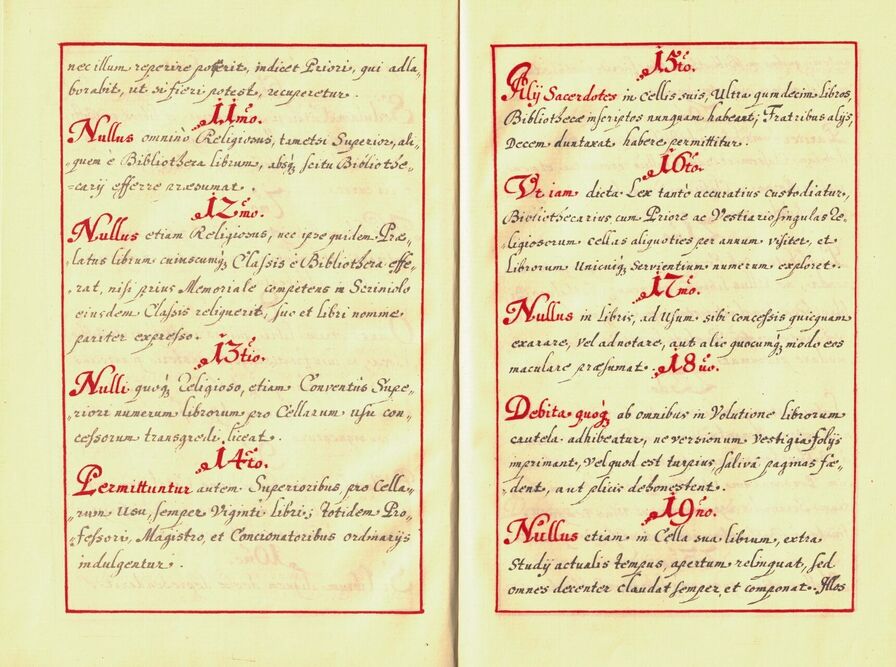 nec illum reperire poterit, indicet Priori, qui adla„
borabit, ut si fieri potest, recuperetur.
11mo.
Nullus omnino Religiosus, tametsi Superior, ali„
„quem è Bibliotheca librum, absq; scitu Bibliothe„
„carij efferre præsumat.
12mo.
Nullus etiam Religiosus, nec ipse quidem Præ„
„latus librum cuiuscumq; Classis è Bibliotheca effe„
„rat, nisi prius Memoriale competens in Scriniolo
eiusdem Classis reliquerit, suo et libri nomine
pariter expresso.
13tio.
Nulli quoq; Religioso, etiam Conventûs Supe„
„riori numerum librorum pro Cellarum usu con„
„cessorum transgredi liceat.
14to.
Permittuntur autem Superioribus, pro Cella„
„rum Usu, semper Viginti libri; totidem Pro„
„fessori, Magistro, et Concionatoribus ordinarijs
indulgentur.
15to.
Alij Sacerdotes in Cellis suis, Ultra quindecim libros,
Bibliothecæ inscriptos nunquam habeant; Fratribus alijs,
Decem duntaxat habere permittitur.
16to.
Ut iam dicta Lex tantò accuratius custodiatur,
Bibliothecarius, cum Priore ac Vestiario singulas Re„
„ligiosorum Cellas aliquoties per annum visitet, et
Librorum Unicuiq; Servientium numerum exploret.
17mo.
Nullus in libris, ad Usum sibi concessis quicquam
exarare, vel adnotare, aut alio quocumq; modo eos
maculare præsumat.
18vo.
Debita quoq; ab omnibus in Volutione librorum
cautela adhibeatur, ne versionum vestigia folijs
imprimant, vel quod est turpius, salivâ paginas fœ„
„dent, aut plicis dehonestent.
19no.
Nullus etiam in Cella sua librum, extra
Studij actualis tempus, apertum relinquat, sed
omnes decenter claudat semper, et componat. Illos